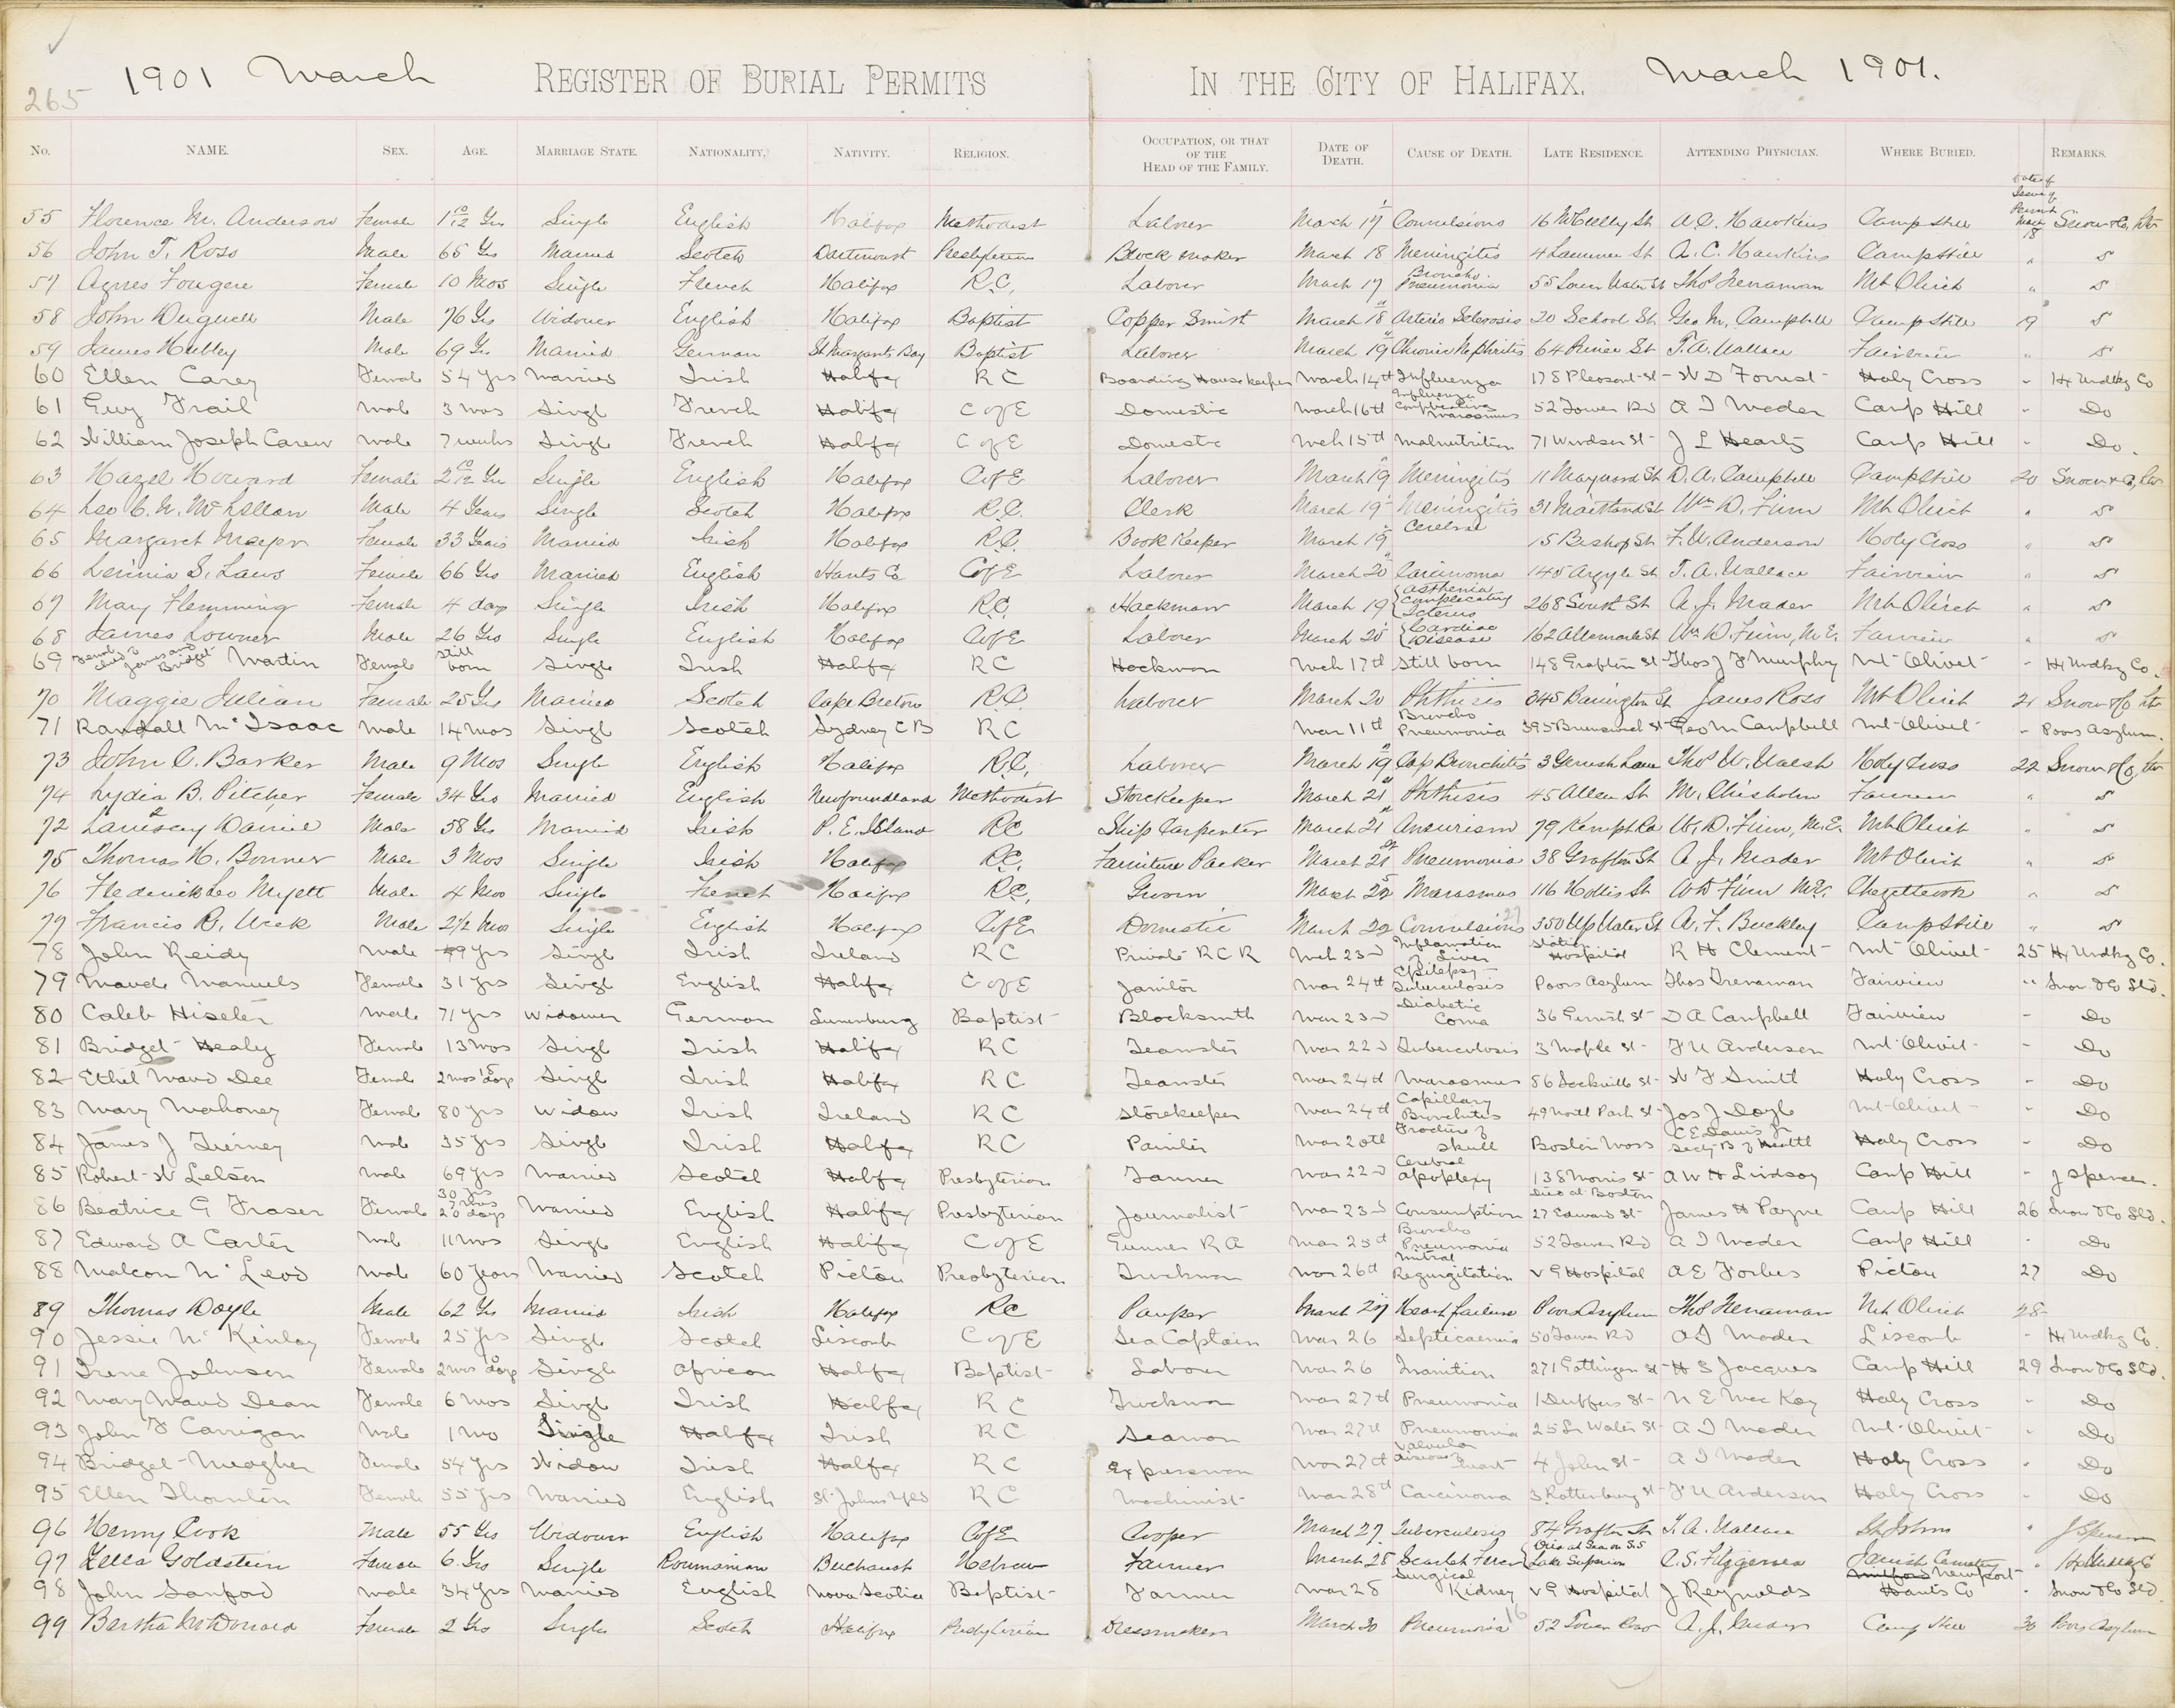 265
1901 March REGISTER OF BURIAL PERMITS IN THE CITY OF HALIFAX. March 1901.
No. NAME. SEX. AGE. MARRIAGE STATE. NATIONALITY. NATIVITY. RELIGION. OCCUPATION, OR THAT OF THE HEAD OF THE FAMILY. DATE OF DEATH. CAUSE OF DEATH. LATE RESIDENCE. ATTENDING PHYSICIAN. WHERE BURIED. Date of Issue of Permit REMARKS.
55 Florence M. Anderson Female 1 10/12 Yrs Single English Halifax Methodist Laborer March 17 Convulsions 16 McCully St A.C. Hawkins Camp Hill March 18 Snow & Co,
56 John T. Ross Male 65 Yrs Married Scotch Dartmouth Presbyterian Block maker March 18 Meningitis 4 Lawrence St A.C. Hawkins Camp Hill " S
57 Agnes Fougere Female 10 Mos Single French Halifax R.C. Laborer March 17 Broncho Pneumonia 55 Lower Water St Thos Trenaman Mt Olivet " S
58 John Duguell Male 76 Yrs Widower English Halifax Baptist Copper Smith March 18 Arterio Sclerosis 20 School St Geo M. Campbell Camp Hill 19 S
59 James Hubley Male 69 Yrs Married German St Margarets Bay Baptist Laborer March 19 Chronic Nephritis 64 Prince St T.A. Wallace Fairview " S
60 Ellen Carey Female 54 yrs Married Irish Halifax R C Boarding House keeper March 14th Influenza 178 Pleasant St W D Forrest Holy Cross " Hx Undtkg Co
61 Guy Trail Male 3 mos Single French Halifax C of E Domestic March 16th Influenza Complicating Marasmus 52 Tower Rd A I Mader Camp Hill " Do
62 William Joseph Carew Male 7 weeks Single French Halifax C of E Domestic Mch 15th Malnutrition 71 Windsor St J L Hearty Camp Hill " Do.
63 Hazel Howard Female 2 10/12 Yrs Single English Halifax C of E Laborer March 19 Meningitis 11 Maynard St D.A. Campbell Camp Hill 20 Snow & Co,
64 Leo C.W. McLellan Male 4 Years Single Scotch Halifax R.C. Clerk March 19 Meningitis Cerebral 31 Maitland St Wm D. Finn Mt Olivet " S
65 Margaret Meyer Female 33 Years Married Irish Halifax R.C. Book Keeper March 19 15 Bishop St F.U. Anderson Holy Cross " S
66 Levinia S. Laws Female 66 Yrs Married English Hants Co C of E Laborer March 20 Carcinoma 145 Argyle St T.A. Wallace Fairview " S
67 Mary Flemming Female 4 days Single Irish Halifax R.C. Hackman March 19 Asthenia Complicating Icterus 268 South St A.J. Mader Mt Olivet " S
68 James Lowner Male 26 Yrs Single English Halifax C of E Laborer March 20 Cardiac Disease 162 Albemarle St Wm D. Finn, M.E. Fairview " S
69 Female child of James and Bridget Martin Female Still born Single Irish Halifax RC Hackman Mch 17th Still born 148 Grafton St Thos J F Murphy Mt Olivet " Hx Undtkg Co.
70 Maggie Julian Female 25 Yrs Married Scotch Cape Breton R.C. Laborer March 20 Phthisis 345 Barrington St James Ross Mt Olivet 21 Snow & Co
71 Randall McIsaac Male 14 mos Single Scotch Sydney C B R C Mar 11th Broncho Pneumonia 395 Brunswick St Geo M Campbell Mt Olivet " Poors Asylum.
73 John C. Barker Male 9 Mos Single English Halifax R.C. Laborer March 19 Cap Bronchitis 3 Gerrish Lane Thos W. Walsh Holy Cross 22 Snow & Co,
74 Lydia B. Pitcher Female 34 Yrs Married English Newfoundland Methodist Storekeeper March 21 Phthisis 45 Allen St M. Chisholm Fairview " S
72 Daniel Male 58 Yrs Married Irish P.E. Island RC Ship Carpenter March 21 Aneurism 79 Kempt Rd W.D. Finn, M.E. Mt Olivet " S
75 Thomas H. Bonner Male 3 Mos Single Irish Halifax R.C. Furniture Packer March 21 Pneumonia 38 Grafton St A.J. Mader Mt Olivet " S
76 Frederick Leo Myett Male 4 Mos Single French Halifax R.C. March 22 Marasmus 116 Hollis St WD Finn M.E. Chezzetcook " S
77 Francis R. Wick Male 2 1/2 Mos Single English Halifax C of E Domestic March 22 Convulsions 27 350 Up Water St A.F. Buckley Camp Hill " S
78 John Reidy Male 49 yrs Single Irish Ireland R C Private R C R Mch 23rd Inflamation of Liver Station Hospital R H Clement Mt Olivet 25 Hx Undtkg Co.
79 Maude Manuels Female 31 yrs Single English Halifax C of E Janitor Mar 24th Epilepsy Tuberculosis Poors Asylum Thos Trenaman Fairview " Snow & Co Ltd.
80 Caleb Hiseler Male 71 yrs Widower German Lunenburg Baptist Blacksmith Mar 23rd Diabetic Coma 36 Gerrish St D A Campbell Fairview " Do
81 Bridget Healy Female 13 mos Single Irish Halifax R C Teamster Mar 22nd Tuberculosis 3 Maple St F U Anderson Mt Olivet " Do
82 Ethel Maud Dee Female 2 mos 5 days Single Irish Halifax R C Teamster Mar 24th Marasmus 86 Sackville St W F Smith Holy Cross " Do
83 Mary Mahoney Female 80 yrs Widow Irish Ireland R C Storekeeper Mar 24th Capillary Bronchitis 49 North Park St Jos J Doyle Mt Olivet " Do
84 James J Tierney Male 35 yrs Single Irish Halifax R C Painter Mar 20th Fracture of Skull Boston Mass C E Davis Jr Secty B of Health Holy Cross " Do
85 Robert W Letson Male 69 yrs Married Scotch Halifax Presbyterian Tanner Mar 22nd Cerebral Apoplexy 138 Morris St A W H Lindsay Camp Hill " J Spencer.
86 Beatrice G Fraser Female 30 yrs 7 mos 20 days Married English Halifax Presbyterian Journalist Mar 23rd Consumption Died at Boston 27 Edward St James H Payne Camp Hill 26 Snow & Co Ltd.
87 Edward A Carter Male 11 mos Single English Halifax C of E Gunner R A Mar 25th Broncho Pneumonia 52 Tower Rd A I Mader Camp Hill " Do
88 Malcom McLeod Male 60 years Married Scotch Pictou Presbyterian Truckman Mar 26th Mitral Regurgitation V G Hospital A E Forbes Pictou 27 Do
89 Thomas Doyle Male 62 Yrs Married Irish Halifax RC Pauper March 27 Heart failure Poors Asylum Thos Trenaman Mt Olivet 28
90 Jessie McKinlay Female 25 yrs Single Scotch Liscomb C of E Sea Captain Mar 26 Septicaemia 50 Tower Rd A I Mader Liscomb " Hx Undtkg Co.
91 Irene Johnson Female 2 mos days Single African Halifax Baptist Laborer Mar 26 Inanition 271 Gottingen St H S Jacques Camp Hill 29 Snow & Co Ltd.
92 Mary Maud Dean Female 6 mos Single Irish Halifax R C Truckman Mar 27th Pneumonia 1 Duffers St N E MacKay Holy Cross " Do
93 John F Carrigan Male 1 mo Single Halifax Irish R C Seaman Mar 27th Pneumonia 25 Lr Water St A I Mader Mt Olivet " Do
94 Bridget Meagher Female 54 yrs Widow Irish Halifax R C Expressman Mar 27th Valvular disease of heart 4 John St A I Mader Holy Cross " Do
95 Ellen Thornton Female 55 yrs Married English St Johns Nfld R C Machinist Mar 28th Carcinoma 3 Rottenburg St F U Anderson Holy Cross " Do
96 Henry Cook Male 55 Yrs Widower English Halifax C of E Cooper March 27 Tuberculosis 84 Grafton St T.A. Wallace St Johns " J Spencer
97 Zella Goldstein Female 6 Yrs Single Roumanian Bucharest Hebrew Farmer March 28 Scarlet Fever Died at Sea on S.S Lake Superior Jewish Cemetery "
98 John Sanford Male 34 yrs Married English Nova Scotia Baptist Farmer Mar 28 Surgical Kidney V G Hospital J Reynolds Newport Hants Co " Snow & Co Ltd
99 Bertha McDonald Female 2 Yrs Single Scotch Halifax Presbyterian Dressmaker March 30 Pneumonia 16 52 Tower Road A.J. Mader Camp Hill 30 Poors Asylum